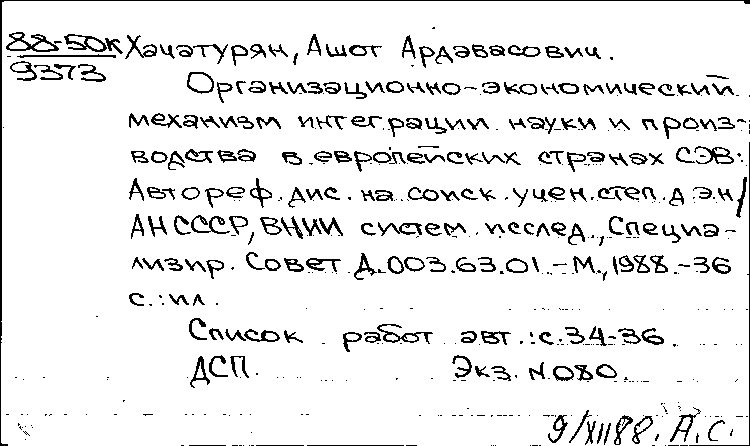 88-50к Хачатурян, Ашот Ардавасович.
9373
Организационно-экономический
механизм интеграции науки и произ-
водства в европейских странах СЭВ:
Автореф. дис. на соиск. учен. степ. д.э.н/
АН СССР, ВНИИ систем. исслед., Специа-
лизир. Совет Д.003.63.01.-М., 1988.-36
с.:ил.
Список работ авт.: с.34-36.
ДСП. Экз. N080.
9/XII88. А.С.